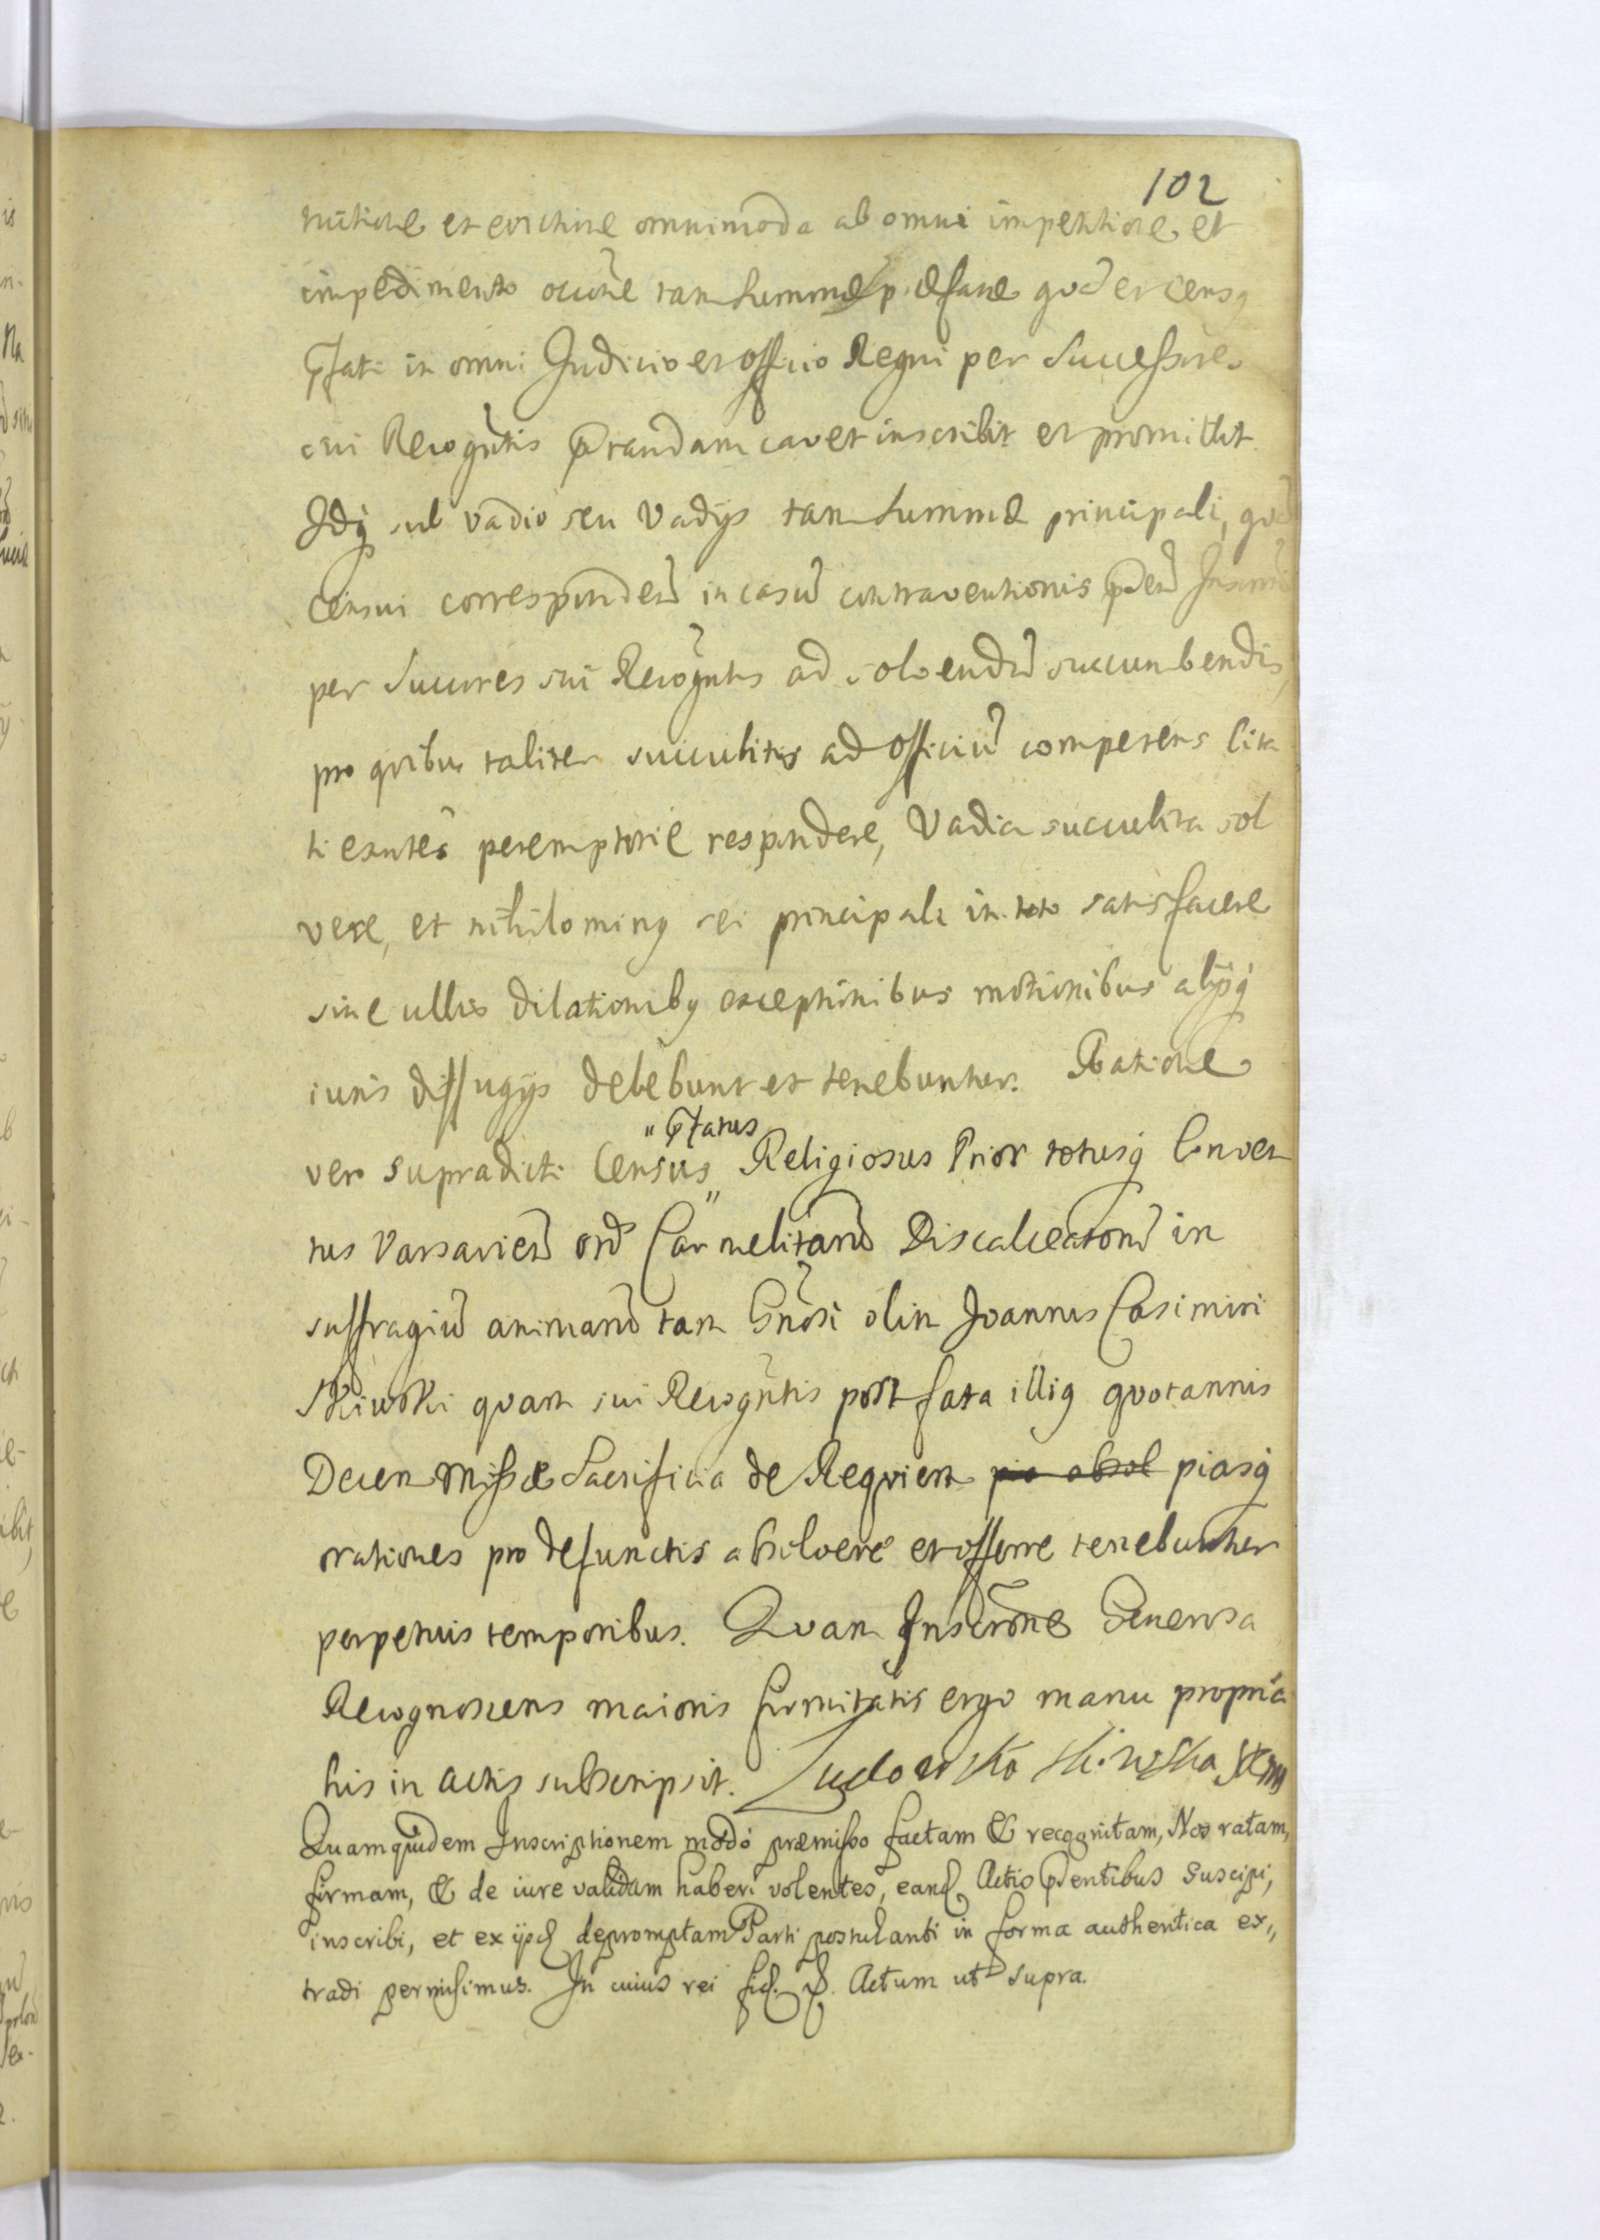 102
nitione et evictione omnimoda ab omni impetitione et
impedimento ocione tam summæ præfatæ qvod et census
pſati in omni Judicio et officio Regni per Successores
sui Recogntis præstandam cavet inscribit et promittit.
Idq sub vadio seu Vadijs tam summæ principali, qvod
Censui corresponden in casu contraventionis pden Inscrōni
per Succores sui Recogntis ad solvendū succumbendis,
pro qvibus taliter succubitis ad officiū competens cita
ti exntes peremptorie respondere, Vadia succubita sol
vere, et nihilominq rei principali in toto satisfacere
sine ullis dilationibq exceptionibus motionibus alijsq
iuris diffugijs debebunt et tenebuntur. Ratione
" pſatus
vero supradicti Census " Religiosus Prior totusq Conven
tus Varsavien ord Carmelitarū Discalceatorū in
suffragiū animarū tam Gnosi olim Joannis Casimiri
Skiwski qvam sui Recogntis post fata illiq qvotannis
Decem Missæ Sacrificia de Reqviem pio absol piasq
orationes pro defunctis absolvere et offerre tenebuntur
perpetuis temporibus. Qvam Inscrōne Generosa
Recognoscens maioris firmitatis ergo manu propria
his in actis subscripsit. Ludowika Skiwska
Quamquidem Inscriptionem modo præmisso factam & recognitam, Nos ratam,
firmam, & de iure validam haberi volentes, eand Actis pđentibus suscipi,
inscribi, et ex ijsd depromptam Parti postulanti in forma authentica ex,,
tradi permisimus. In cuius rei fid. Actum ut supra.